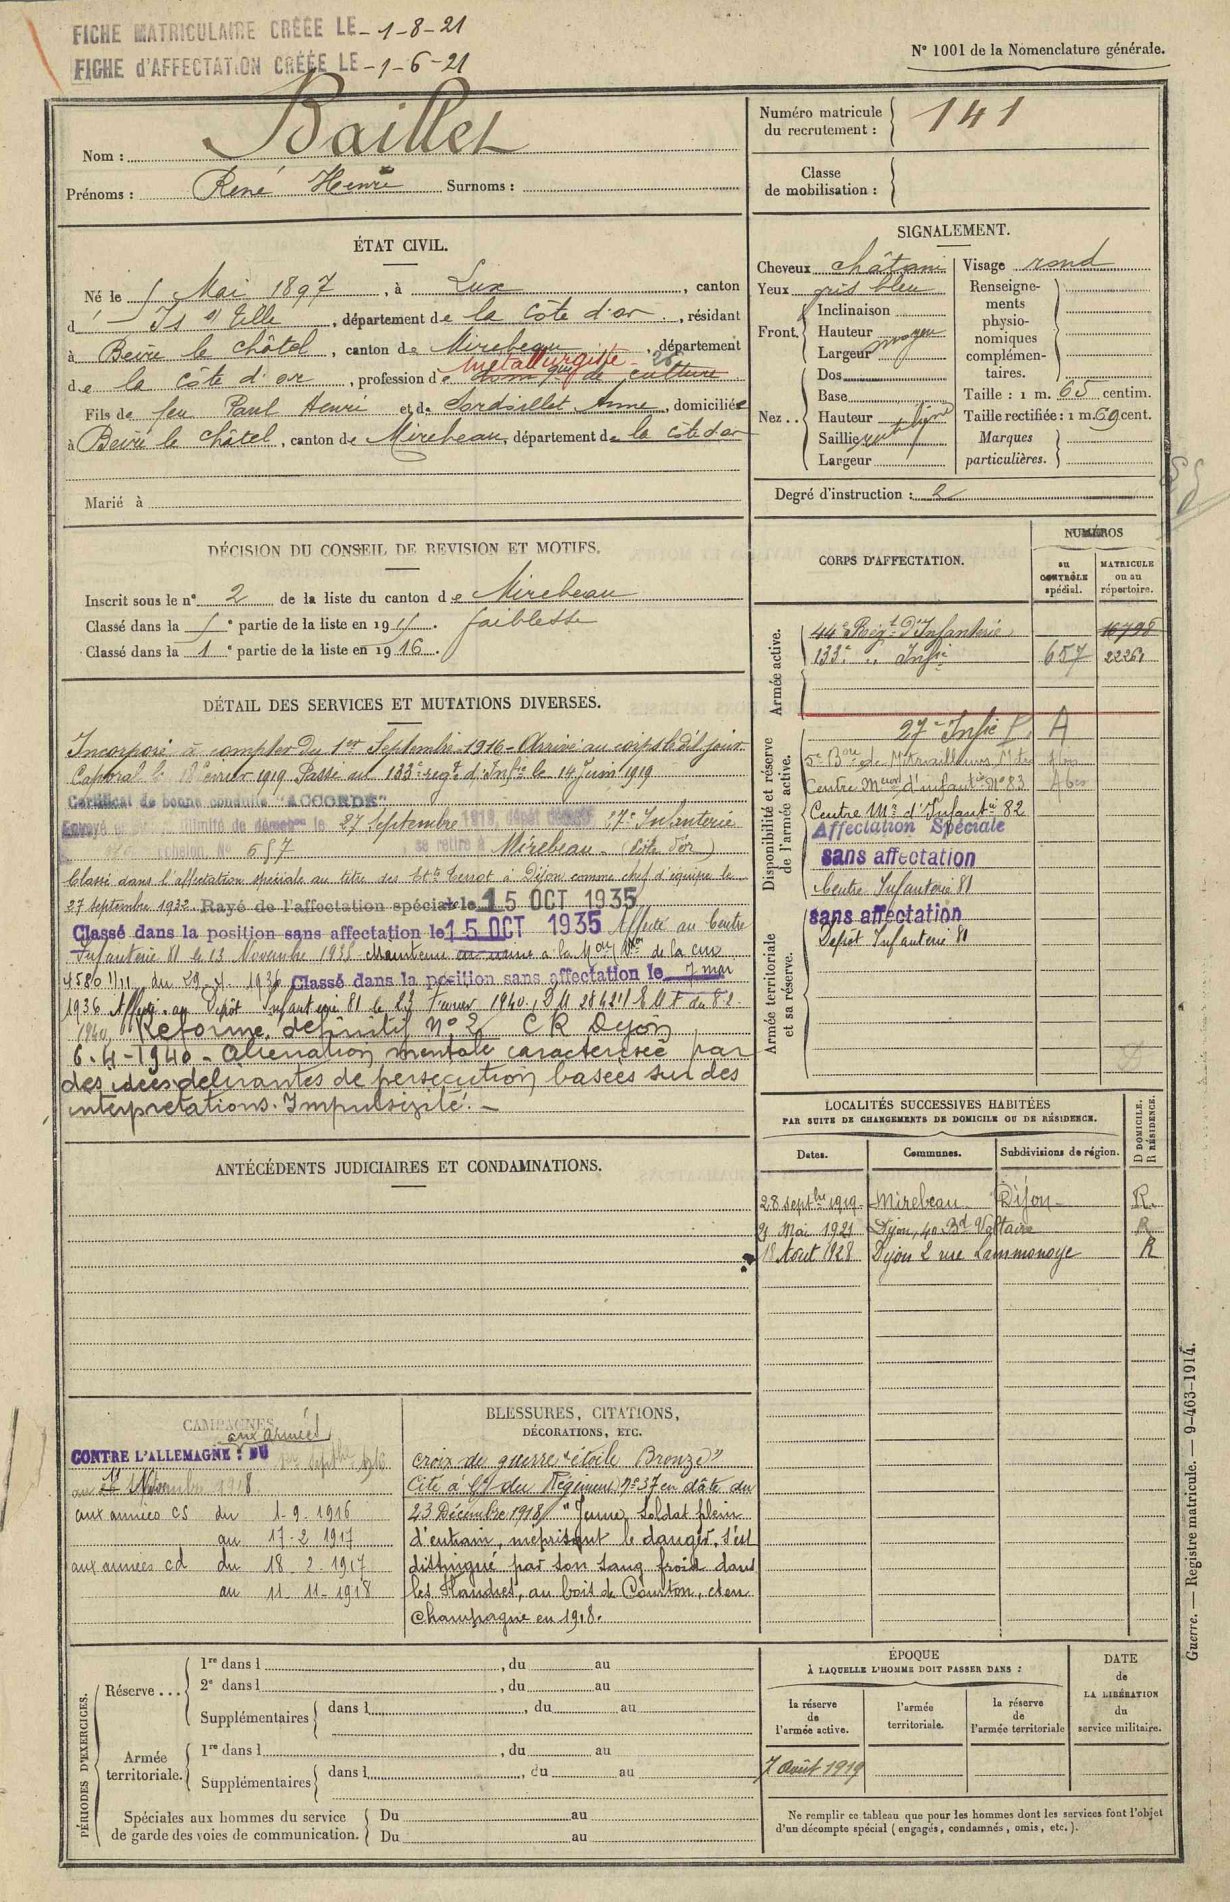 FICHE MATRICULAIRE CRÉÉE LE - 1-8-21
FICHE d'AFFECTATION CRÉÉE LE - 1-6-21
N° 1001 de la Nomenclature générale.
Nom : Baillet
Prénoms : René Henri Surnoms :
Numéro matricule du recrutement : 141
Classe de mobilisation :
ÉTAT CIVIL.
Né le 5 Mai 1897, à Lux, canton
d' Is s/ Tille, département de la Côte d'or, résidant
à Beire le Châtel, canton de Mirebeau, département
métallurgiste 26
de la Côte d'or, profession de domestique de culture
Fils de feu Paul Henri et de Anne, domiciliée
à Beire le Châtel, canton de Mirebeau, département de la côte d'or
Marié à
SIGNALEMENT.
Cheveux châtain
Yeux gris bleu
Front. Inclinaison
Hauteur moyen
Largeur
Nez.. Dos
Base
Hauteur
Saillie rectiligne
Largeur
Visage rond
Renseignements physionomiques complémentaires.
Taille : 1 m. 65 centim.
Taille rectifiée : 1 m. 69 cent.
Marques particulières.
Degré d'instruction : 2
DÉCISION DU CONSEIL DE REVISION ET MOTIFS.
Inscrit sous le n° 2 de la liste du canton de Mirebeau
Classé dans la 5e partie de la liste en 1915. faiblesse
Classé dans la 1e partie de la liste en 1916.
CORPS D'AFFECTATION.
NUMÉROS
au CONTRÔLE spécial.
MATRICULE ou au répertoire.
Armée active.
44e Régt d'Infanterie 16798
133e " Infie 657 2226
Disponibilité et réserve de l'armée active.
27e Infie A
Centre d'infantie N° 83
Centre d'Infantie 82
Affectation Spéciale
sans affectation
Centre Infanterie 81
Armée territoriale et sa réserve.
sans affectation
Dépôt Infanterie 81
DÉTAIL DES SERVICES ET MUTATIONS DIVERSES.
Incorporé à compter du 1er Septembre 1916 - Arrivé au corps le dit jour
Caporal le 18 février 1919 Passé au 133e régt d'Infie le 14 Juin 1919
Certificat de bonne conduite "ACCORDÉ"
Envoyé en illimité de le 27 septembre 1919, dépôt 27e Infanterie
échelon. N° 657 se retire à Mirebeau (Côte d'or)
Classé dans l'affectation spéciale au titre des Ets Terrot à Dijon comme chef d'équipe le
27 septembre 1932. Rayé de l'affectation spéciale le 15 OCT 1935
Classé dans la position sans affectation le 15 OCT 1935 Affecté au Centre
Infanterie 81 le 13 Novembre 1935 à la de la
4580 du 29 1936 Classé dans la position sans affectation le 7 mai
1936 Affecté au Dépôt Infanterie 81 le 23 février 1940,
1940 Réforme définitif N° 2 CR Dijon
6-4-1940 - Aliénation mentale caractérisée par
des idées délirantes de persécution basées sur des
interprétations. Impulsivité. -
ANTÉCÉDENTS JUDICIAIRES ET CONDAMNATIONS.
LOCALITÉS SUCCESSIVES HABITÉES
PAR SUITE DE CHANGEMENTS DE DOMICILE OU DE RÉSIDENCE.
Dates. Communes. Subdivisions de région. D DOMICILE. R RÉSIDENCE.
28 septbre 1919 Mirebeau Dijon R.
21 Mai 1921 Dijon, 40 Bd Voltaire R
18 Aout 1928 Dijon 2 rue Lammonoye R
CAMPAGNES.
aux armées
CONTRE L'ALLEMAGNE : DU 1er septbre 1916
au Novembre 1918
aux armées CS du 1-9-1916
au 17-2-1917
aux armées cd du 18-2-1917
au 11-11-1918
BLESSURES, CITATIONS,
DÉCORATIONS, ETC.
Croix de guerre "étoile Bronze"
Cité à l'O du Régiment N° 37 en date du
23 Décembre 1918 "Jeune Soldat plein
d'entrain, méprisant le danger, s'est
distingué par son sang froid dans
les Flandres, au bois de Courton, et en
Champagne en 1918.
PÉRIODES D'EXERCICES.
Réserve... 1re dans l , du au
2e dans l , du au
Supplémentaires dans l , du au
Armée territoriale. 1re dans l , du au
Supplémentaires dans l , du au
Spéciales aux hommes du service de garde des voies de communication. Du au
Du au
ÉPOQUE
À LAQUELLE L'HOMME DOIT PASSER DANS :
la réserve de l'armée active.
l'armée territoriale.
la réserve de l'armée territoriale
DATE de LA LIBÉRATION du service militaire.
7 Août 1919
Ne remplir ce tableau que pour les hommes dont les services font l'objet
d'un décompte spécial (engagés, condamnés, omis, etc.).
Guerre. — Registre matricule. — 9-463-1914.